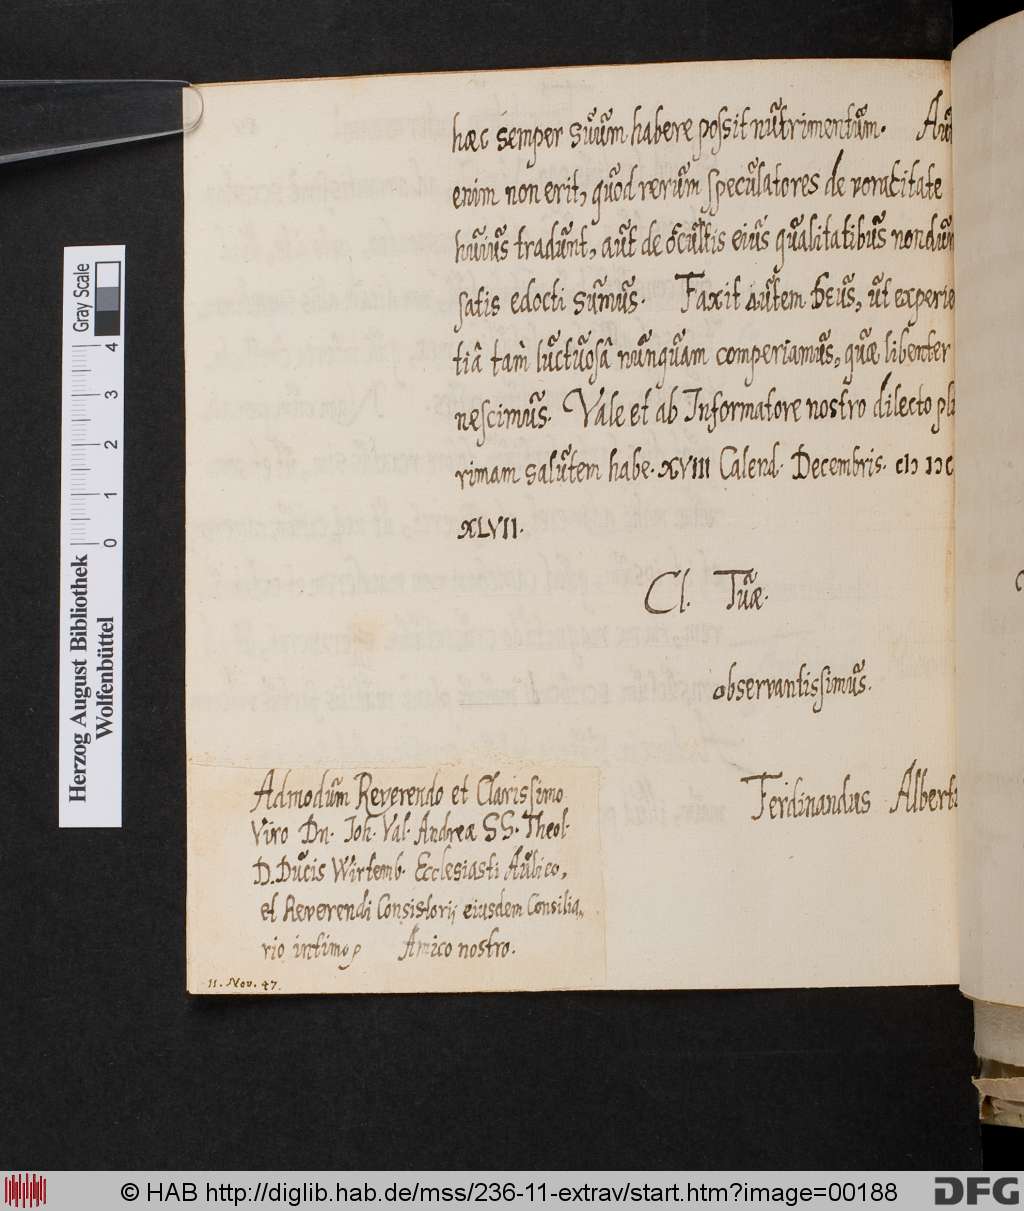 hæc semper suum habere possit nutrimentum. Aut
enim non erit, quod rerum speculatores de voracitate
huius tradunt, aut de occultis eius qualitatibus nondum
satis edocti sumus. Faxit autem Deus, ut experie
tiâ tam luctuosâ nunquam comperiamus, quæ libenter
nescimus. Vale et ab Informatore nostro dilecto plu
rimam salutem habe. XVIII Calend. Decembris. cIↄ Iↄc
XLVII.
Cl. Tuæ.
observantissimus.
Ferdinandus Albertu
Admodum Reverendo et Clarissimo
Viro Dn. Joh. Val. Andreæ SS. Theol.
D. Ducis Wirtemb. Ecclesiasti Aulico,
et Reverendi Consistorij eiusdem Consilia,
rio intimo, Amico nostro.
11. Nov. 47.
Herzog August Bibliothek
Wolfenbüttel
0 1 2 3 4
Gray Scale
© HAB http://diglib.hab.de/mss/236-11-extrav/start.htm?image=00188
DFG